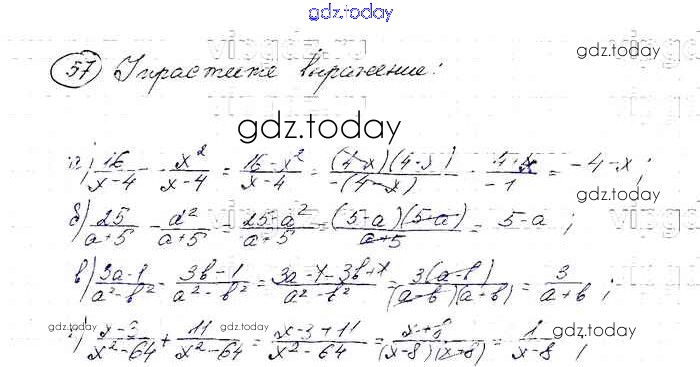 gdz.today
57 Упростите выражение:
gdz.today
gdz.today
а) 16/(x-4) - x²/(x-4) = (16-x²)/(x-4) = (4-x)(4-x)/-(4-x) = (4+x)/-1 = -4-x;
б) 25/(a+5) - a²/(a+5) = (25-a²)/(a+5) = (5-a)(5+a)/(a+5) = 5-a;
в) (3a-1)/(a²-b²) - (3b-1)/(a²-b²) = (3a-1-3b+1)/(a²-b²) = 3(a-b)/(a-b)(a+b) = 3/(a+b);
gdz.today
gdz.today
г) (x-3)/(x²-64) + 11/(x²-64) = (x-3+11)/(x²-64) = (x+8)/(x-8)(x+8) = 1/(x-8);
gdz.today